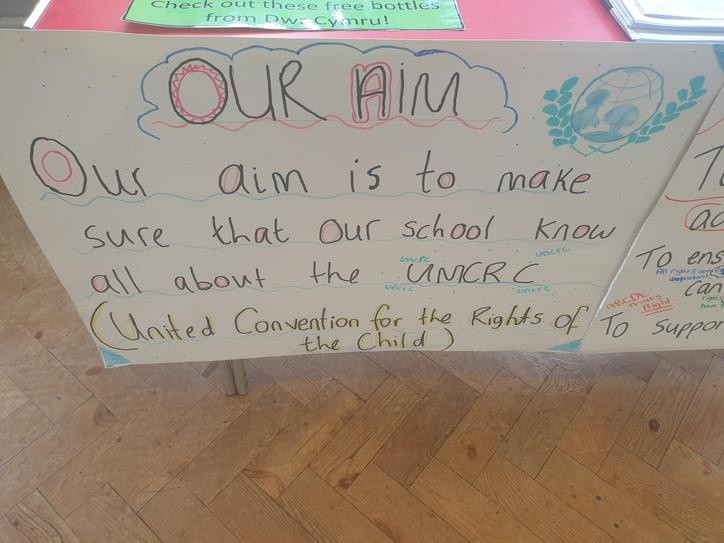 Check out these free bottles
from Dŵr Cymru!
OUR AIM
Our aim is to make
sure that our school know
all about the UNCRC
uncrc
uncrc
uncrc
uncrc
(United Convention for the Rights of
the Child)
To ens
All rights are
important
can
ABCDE
Right
To suppor